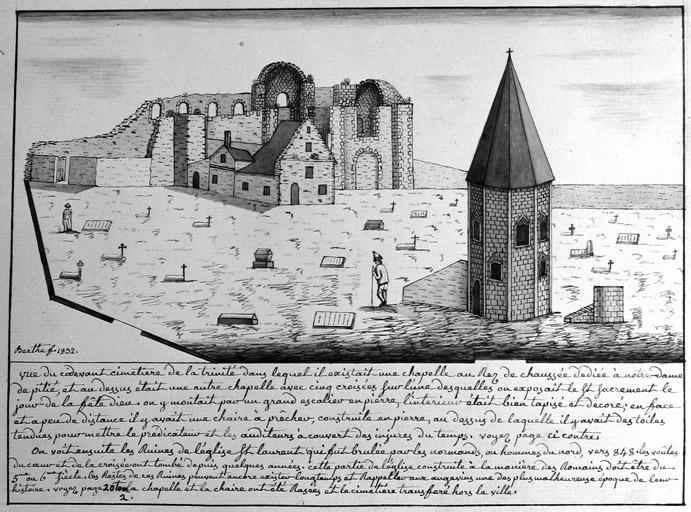 Berthe f. 1832.
vue du cidevant cimetiere de la trinité dans lequel il existait une chapelle au Rez de chaussée dediée à notre-dame
de pitié, et au dessus était une autre chapelle avec cinq croisées sur l'une desquelles on exposait le St sacrement le
jour de la fête dieu. on y montait par un grand escalier en pierre, l'interieur était bien tapisé et decoré; en face
et a peu de distance il y avait une chaire à prêcher, construite en pierre, au dessus de laquelle il y avait des toiles
tendues pour mettre le prédicateur et les auditeurs à couvert des injures du temps. voyez page ci contre.
On voit ensuite les Ruines de l'église St laurent qui fut brulée par les normands, ou hommes du nord, vers 848. les voûtes
du cœur et de la croisée ont tombé depuis quelques années. cette partie de l'église construite à la manière des Romains doit être du
5e ou 6e siècle. les Restes de ces Ruines peuvent encore exister longtemps et Rappeller aux angevins une des plus malheureuse époque de leur
histoire. voyez page 20 la chapelle et la chaire ont été Rasées et le cimetière transferé hors la ville.
2.